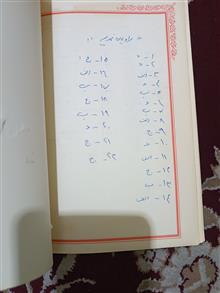 ۱- د
۲- د
۳- الف
۴- د
۵- ب
۶- ب
۷- د
۸- الف
۹- ج
۱۰- د
۱۱- الف
۱۲- ج
۱۳- ب
۱۴- الف
۱۵- ج
۱۶- الف
۱۷- ب
۱۸- ج
۱۹- ب
۲۰- د
۲۱- ج
۲۲- ج